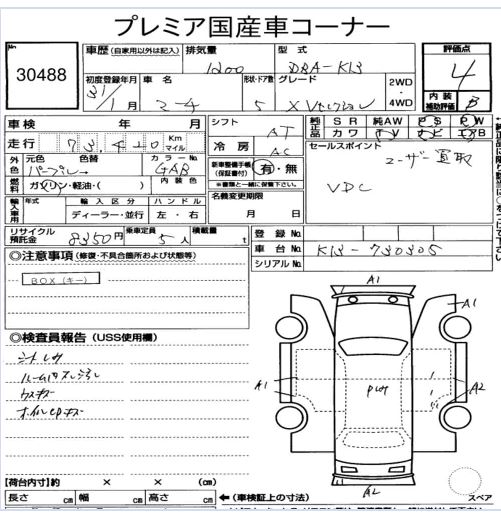 プレミア国産車コーナー
No
30488
車歴 (自家用以外は記入) 排気量 型式
1200 DBA-K13
初度登録年月 車名 形状・ドア数 グレード
31/1月 マーチ 5 X Vセレクション
2WD
・
4WD
評価点
4
内装
補助評価 B
車検 年 月
走行 73,420 Km
マイル
シフト AT
冷房 AC
純正品 SR 純AW PS PW
カワ TV ナビ エアB
外色 元色 色替 カラーNo
パープル→ GAB
内装色
燃料 ガソリン・軽油・( )
新車整備手帳
(保証書付) 有・無
※書類と一緒に保管下さい。
名義変更期限
月 日
セールスポイント
ユーザー買取
VDC
輸入車用 年式 輸入区分 ハンドル
ディーラー・並行 左・右
リサイクル
預託金 8350円 乗車定員 5人 積載量 t
登録No.
車台No. K13-730305
シリアルNo.
◎注意事項 (修復・不具合箇所および状態等)
BOX (キー)
◎検査員報告 (USS使用欄)
シートしみ
ウスキズ
A1
A1
A1
A2
A2
スペア
【荷台内寸】約 × × (cm)
長さ cm 幅 cm 高さ cm
←(車検証上の寸法)